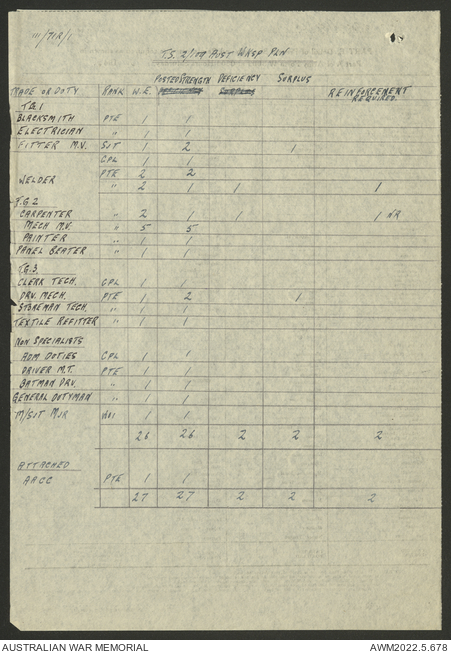 111/71R/1
T.S. 2/ AUST WKSP PLN
TRADE OR DUTY RANK W.E. POSTED STRENGTH DEFICIENCY SURPLUS REINFORCEMENT REQUIRED.
T.G.1
BLACKSMITH PTE 1 1
ELECTRICIAN " 1 1
FITTER M.V. SJT 1 2 1
CPL 1 1
PTE 2 2
WELDER " 2 1 1 1
T.G.2
CARPENTER " 2 1 1 1
MECH M.V. " 5 5
PAINTER " 1 1
PANEL BEATER " 1 1
T.G.3.
CLERK TECH. CPL 1 1
DRV. MECH. PTE 1 2 1
STOREMAN TECH. " 1 1
TEXTILE REFITTER " 1 1
NON SPECIALISTS
ADM DUTIES CPL 1 1
DRIVER M.T. PTE 1 1
BATMAN DRV. " 1 1
GENERAL DUTYMAN " 1 1
M/SJT MJR 1 1
26 26 2 2 2
ATTACHED
AACC PTE 1 1
27 27 2 2 2
AUSTRALIAN WAR MEMORIAL AWM2022.5.678